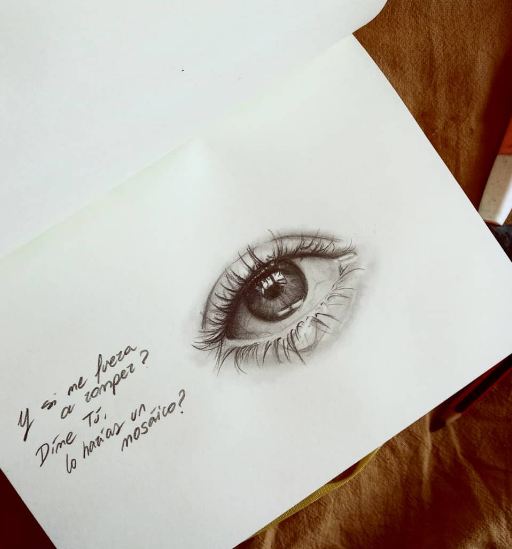 Y si me fuera
a romper?
Díme Tú,
lo harías un
mosáico?